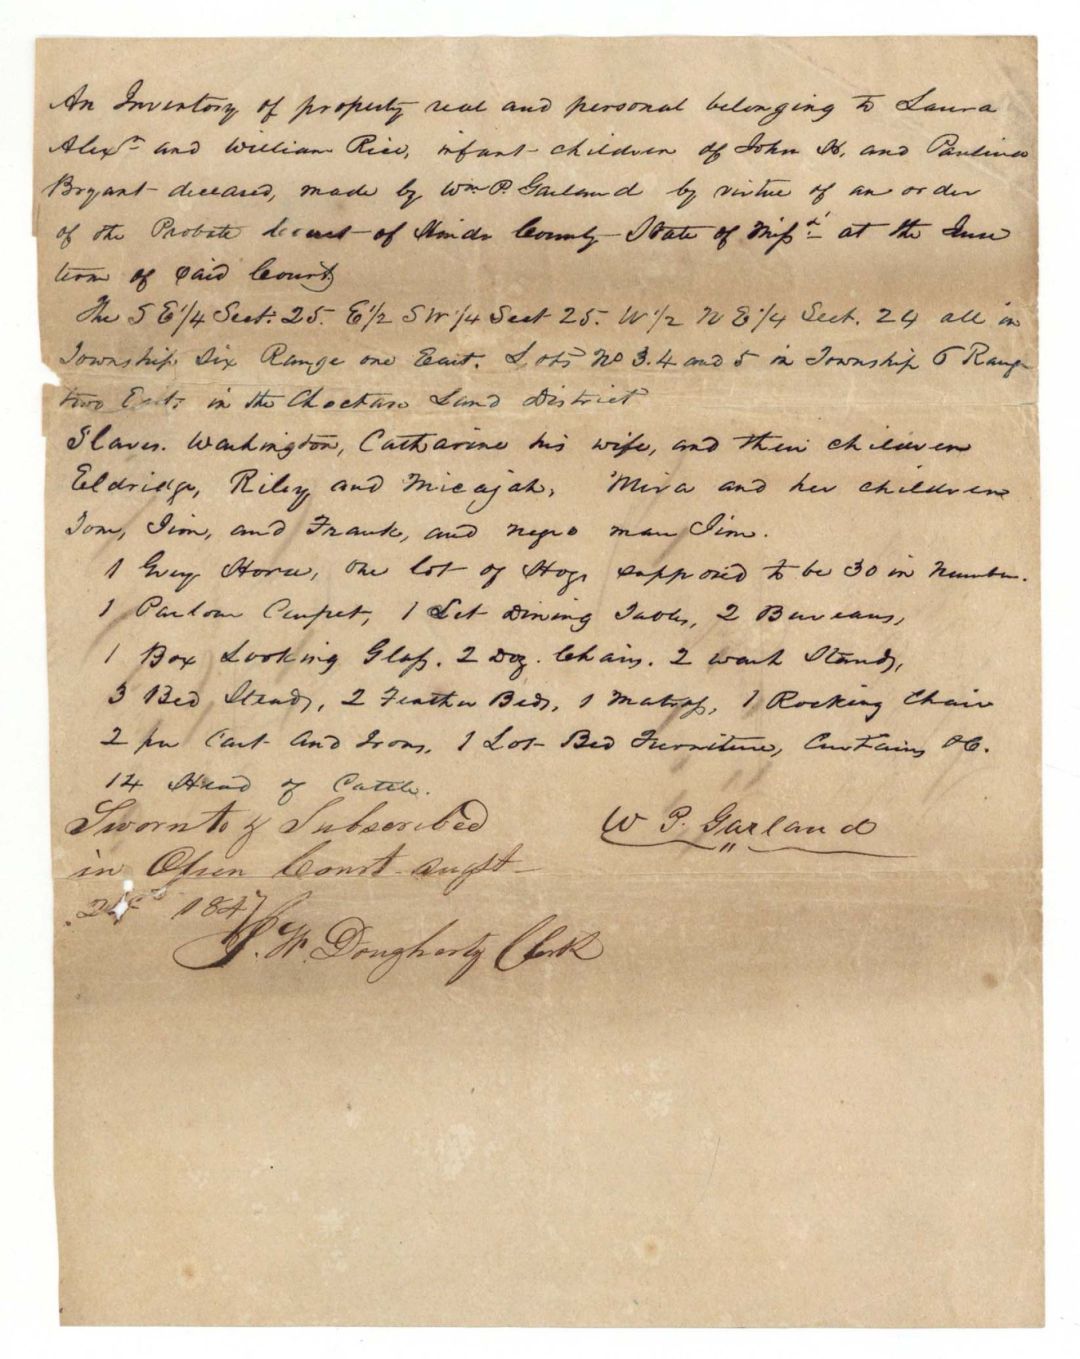 An Inventory of property real and personal belonging to Laura
Alexr and William Rice, infant children of John H. and Paulina
Bryant deceased, made by Wm P. Garland by virtue of an order
of the Probate Court of Hinds County State of Missi at the June
term of said Court
The S E 1/4 Sect. 25. E 1/2 S W 1/4 Sect 25. W 1/2 N E 1/4 Sect. 24 all in
Township Six Range one East. Lots No 3. 4 and 5 in Township 6 Range
two East in the Choctaw Land District
Slaves. Washington, Catharine his wife, and their children
Eldridge, Riley and Micajah, Mira and her children
Tom, Jim, and Frank, and negro man Jim.
1 Grey Horse, One lot of Hogs supposed to be 30 in number.
1 Parlour Carpet, 1 Set Dining Tables, 2 Bureaus,
1 Box Looking Glass. 2 Doz. Chairs. 2 wash Stands,
3 Bed Steads, 2 Feather Beds, 1 Matrass, 1 Rocking Chair
2 pr Cast And Irons, 1 Lot Bed Furniture, Curtains &C.
14 Head of Cattle.
Sworn to & Subscribed
W P. Garland
in Open Court augst
1847
W. Dougherty Clerk